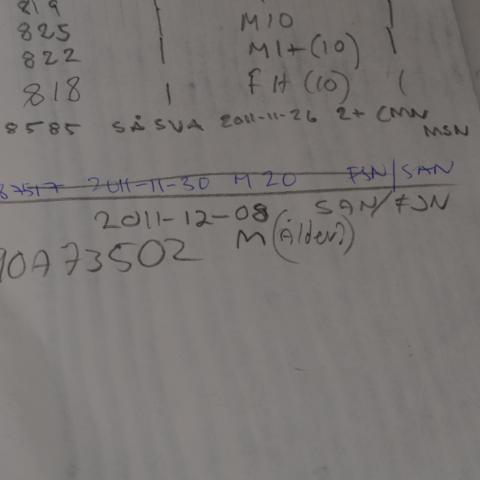 819
825 | M10 |
822 | M1+(10) |
818 | FH (10) (
8585 SÅSVA 2011-11-26 2+ CMN
MSN
87517 2011-11-30 M 20 FSN/SAN
2011-12-08 SAN/FSN
90A73502 M (Ålder?)